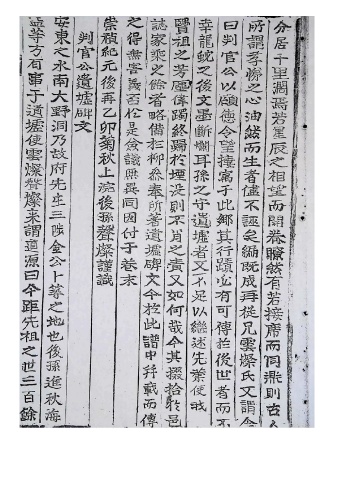 分居千里濶焉若星辰之相望而開卷瞭然有若接席而同爨則古人
所謂孝悌之心油然而生者儘不誣矣編旣成再從兄雲燦氏又謂余
曰判官公以碩德令望捿寓于此鄕其行蹟必有可傳於後世者而不
幸龍蛇之後文墨斷爛耳孫之守遺墟者又不足以繼述先業使我
賢祖之芳徽偉躅終歸於堙沒則不肖之責又如何哉今其掇拾於邑
誌家乘之餘者略備於柳參奉所著遺墟碑文今於此譜中幷載而傳
之得無害義否於是僉議無異同因付于卷末
崇禎紀元後再乙卯菊秋上浣後孫聲燦謹識
判官公遺墟碑文
安東之水南大野洞乃故府先生三陟金公卜築之地也後孫進秋海
益等方有事于遺墟使雲燦聲燦來謂道源曰今距先祖之世三百餘